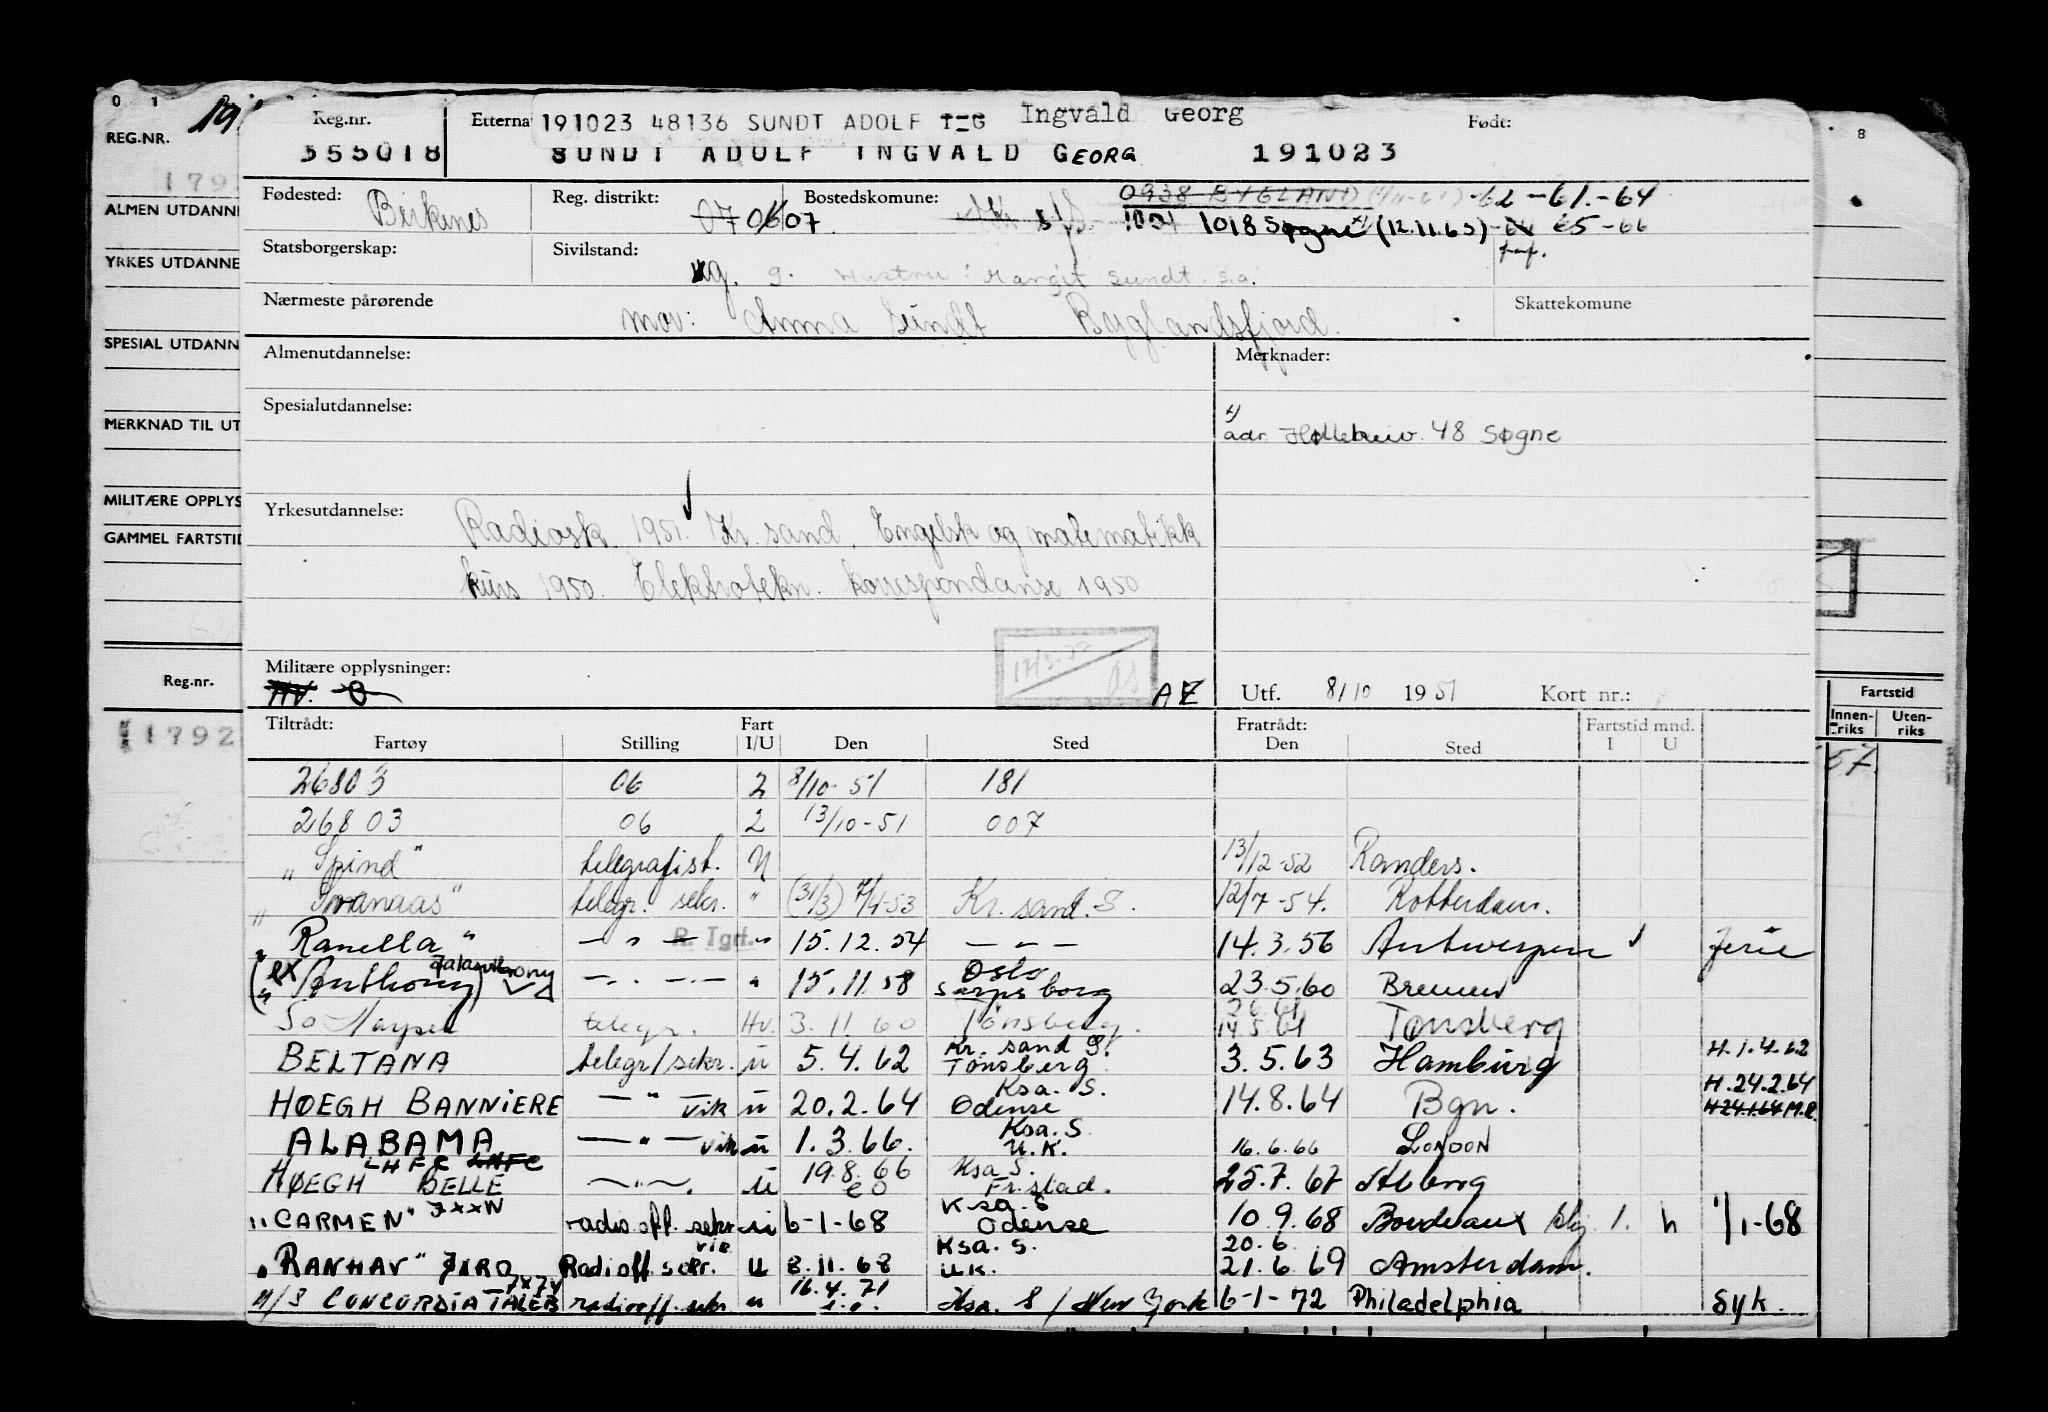 0 1 8
REG.NR. 19
Reg.nr. Etterna 191023 48136 SUNDT ADOLF I-G Ingvald Georg Født:
355018 SUNDT ADOLF INGVALD GEORG 191023
1792
ALMEN UTDANNE
Fødested: Birkenes Reg. distrikt: 07 06 07 Bostedskommune: 0938 BYGLAND -62 -61.-64
1018 Søgne x) (12.11.65) 65 -66
Statsborgerskap: Sivilstand: ug. g. Hustru: Margit Sundt. s.a.
YRKES UTDANNE
Nærmeste pårørende mor: Anna Sundt Byglandsfjord. Skattekomune
SPESIAL UTDANN
Almenutdannelse: Merknader:
Spesialutdannelse:
MERKNAD TIL UT
x) adr. 48 Søgne
MILITÆRE OPPLYS
GAMMEL FARTSTID
Yrkesutdannelse: Radiosk. 1951. Kr. sand. Engelsk og matematikk
kurs 1950. Elektrotekn. korrespondanse 1950
Militære opplysninger: HV. AE Utf. 8/10 1951 Kort nr.:
Reg.nr. Fartstid
Innen-riks Uten-riks
1792 57.
Tiltrådt: Fart Fratrådt: Fartstid mnd.
Fartøy Stilling I/U Den Sted Den Sted I U
26803 06 2 8/10-51 181
26803 06 2 13/10-51 007
"Spind" telegrafist. U 13/12-52 Randers.
"Svanaas" telegr. sekr. " (31/3) 7/4-53 Kr. sand. S. 12/7-54. Rotterdam.
"Ranella" — " — R. Tgrf. " 15.12.54 — " — 14.3.56 Antwerpen Ferie
(ex "Anthony) — " — " 15.11.58 Oslo Sarpsborg 23.5.60 Bremen
telegr. Hv. 3.11.60 Tønsberg. 14.5.61 Tønsberg
BELTANA telegr/sekr. u 5.4.62 Kr. sand S. Tønsberg 3.5.63 Hamburg H.1.4.62
HØEGH BANNIERE — " — vik u 20.2.64 Ksa. S. Odense 14.8.64 Bgn. H.24.2.64 H24.1.64 M.R.
ALABAMA — " — vik u 1.3.66. Ksa. S. U.K. 16.6.66 LONDON
LHFC LHFC
HØEGH BELLE — " — u 19.8.66 eo Ksa S. Fr.stad. 25.7.67 Ålborg
"CARMEN" JXXN radio.off. sekr. u 6-1-68 Ksa. S Odense 10.9.68 Bordeaux 1. h 1/1-68
"RANHAV" JXRO Radioff. sekr. vik U 8.11.68 Ksa. S. UK. 20.6 21.6.69 Amsterdam.
M/S CONCORDIA TALEB JXJV radiooff. sekr. u 16.4.71 e.o. Ksa. S / New York 6-1-72 Philadelphia Syk.